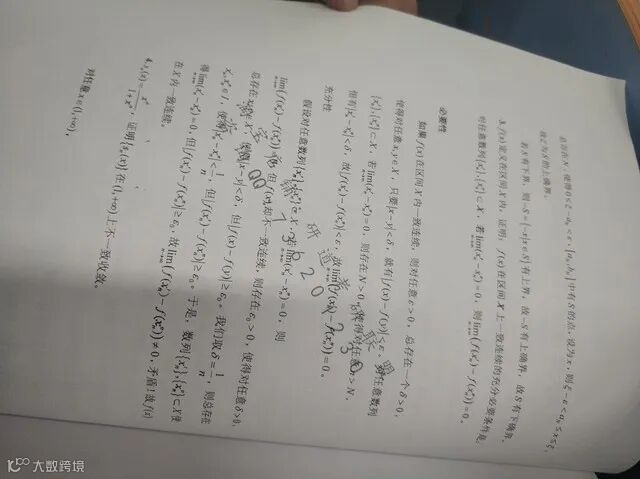 总存在N,使得0≤ξ-aₙ<ε,[aₙ,bₙ]中有S的点,设为x,则ξ-ε<aₙ≤x≤ξ,
故ξ为S的上确界。
若S有下界,则-S={-x|x∈S}有上界,故-S有上确界,故S有下确界。
3. f(x)定义在区间X内,证明:f(x)在区间X上一致连续的充分必要条件是,
对任意数列{x'ₙ},{x''ₙ}⊂X,若lim(x'ₙ-x''ₙ)=0,则lim(f(x'ₙ)-f(x''ₙ))=0。
必要性
如果f(x)在区间X内一致连续,则对任意ε>0,总存在一个δ>0,
使得对任意x,y∈X,只要|x-y|<δ,就有|f(x)-f(y)|<ε,任意数列
{x'ₙ},{x''ₙ}⊂X,若lim(x'ₙ-x''ₙ)=0,则存在N>0,使得对任意n>N,
恒有|x'ₙ-x''ₙ|<δ,故|f(x'ₙ)-f(x''ₙ)|<ε,故lim(f(x'ₙ)-f(x''ₙ))=0。
充分性
假设对任意数列{x'ₙ},{x''ₙ}⊂X,若lim(x'ₙ-x''ₙ)=0,则
lim(f(x'ₙ)-f(x''ₙ))=0,但f(x)却不一致连续,则存在ε₀>0,使得对任意δ>0,
总存在x,y∈X,使得|x-y|<δ,但|f(x)-f(y)|≥ε₀。我们取δ=1/n,则总存在
x'ₙ,x''ₙ∈I,使得|x'ₙ-x''ₙ|<1/n,但|f(x'ₙ)-f(x''ₙ)|≥ε₀。于是,数列{x'ₙ},{x''ₙ}⊂X使
得lim(x'ₙ-x''ₙ)=0,但|f(x'ₙ)-f(x''ₙ)|≥ε₀,故lim(f(x'ₙ)-f(x''ₙ))≠0,矛盾!故f(x)
在X内一致连续。
4. sₙ(x)=xⁿ/(1+xⁿ),证明{sₙ(x)}在(1,+∞)上不一致收敛。
对任意x∈(1,+∞),
大数跨境